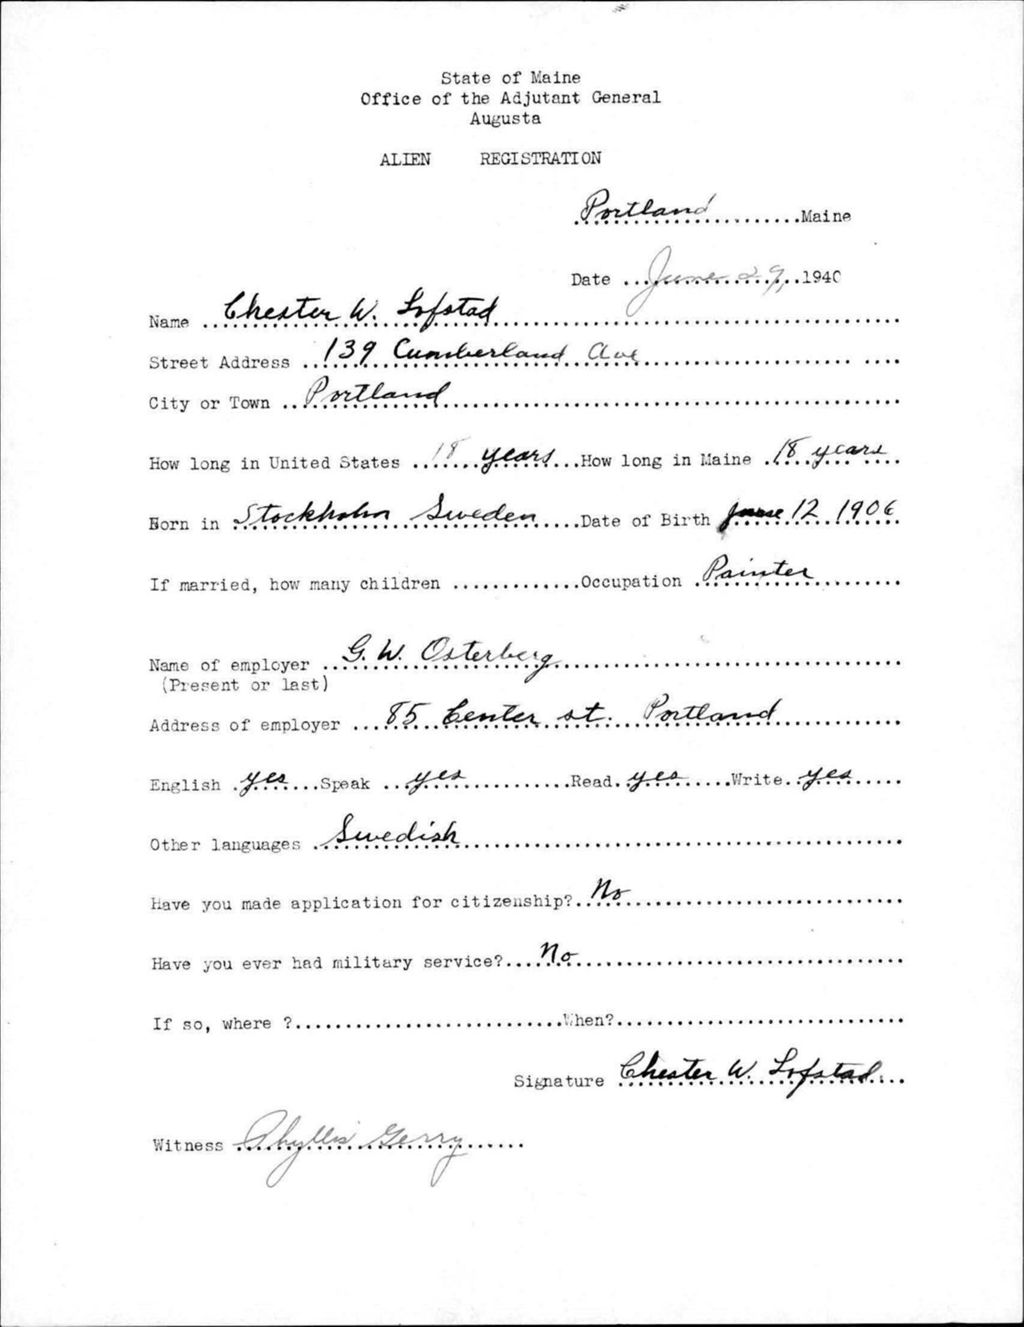 State of Maine
Office of the Adjutant General
Augusta
ALIEN REGISTRATION
Portland Maine
Date June 29, 1940
Name Chester W. Lofstad
Street Address 139 Cumberland Ave
City or Town Portland
How long in United States 18 years How long in Maine 18 years
Born in Stockholm Sweden Date of Birth June 12 1906
If married, how many children Occupation Painter
Name of employer G. W. Osterberg
(Present or last)
Address of employer 85 Center st. Portland
English yes Speak yes Read yes Write yes
Other languages Swedish
Have you made application for citizenship? No
Have you ever had military service? No
If so, where ? When?
Signature Chester W. Lofstad
Witness Phyllis Gerry